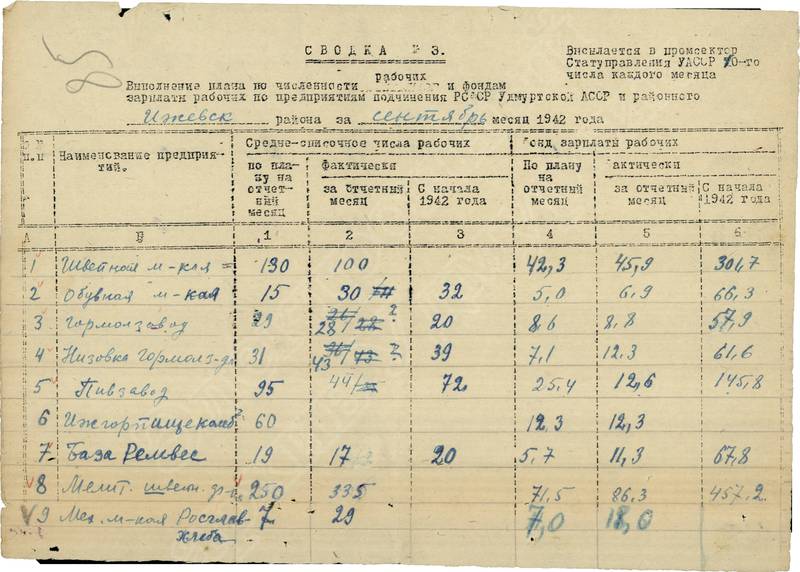 СВОДКА № 3.
Высылается в промсектор
Статуправления УАССР 10-го
числа каждого месяца
рабочих
Выполнение плана по численности и фондам
зарплаты рабочих по предприятиям подчинения РСФСР Удмуртской АССР и районного
Ижевск района за сентябрь месяц 1942 года
№ п.п Наименование предприятий. Средне-списочное числа рабочих Фонд зарплаты рабочих
по плану на отчетный месяц Фактически По плану на отчетный месяц Фактически
за отчетный месяц С начала 1942 года за отчетный месяц С начала 1942 года
А Б 1 2 3 4 5 6
1 Швейной м-кая = 130 100 42,3 45,9 301,7
2 Обувная м-кая 15 30 32 5,0 6,9 66,3
3 Гормолзавод 29 28 20 8,6 8,8 57,9
4 Низовка Гормолз-да 31 43 39 7,1 12,3 61,6
5 Пивзавод 95 44 72 25,4 12,6 145,8
6 Ижгорпищекомб 60 12,3 12,3
7 База Ремвес 19 17 20 5,7 11,3 67,8
8 швейн. ф-ка 250 335 71,5 86,3 457,2
9 Мех. м-кая Росглав- 7 29 7,0 18,0
хлеба